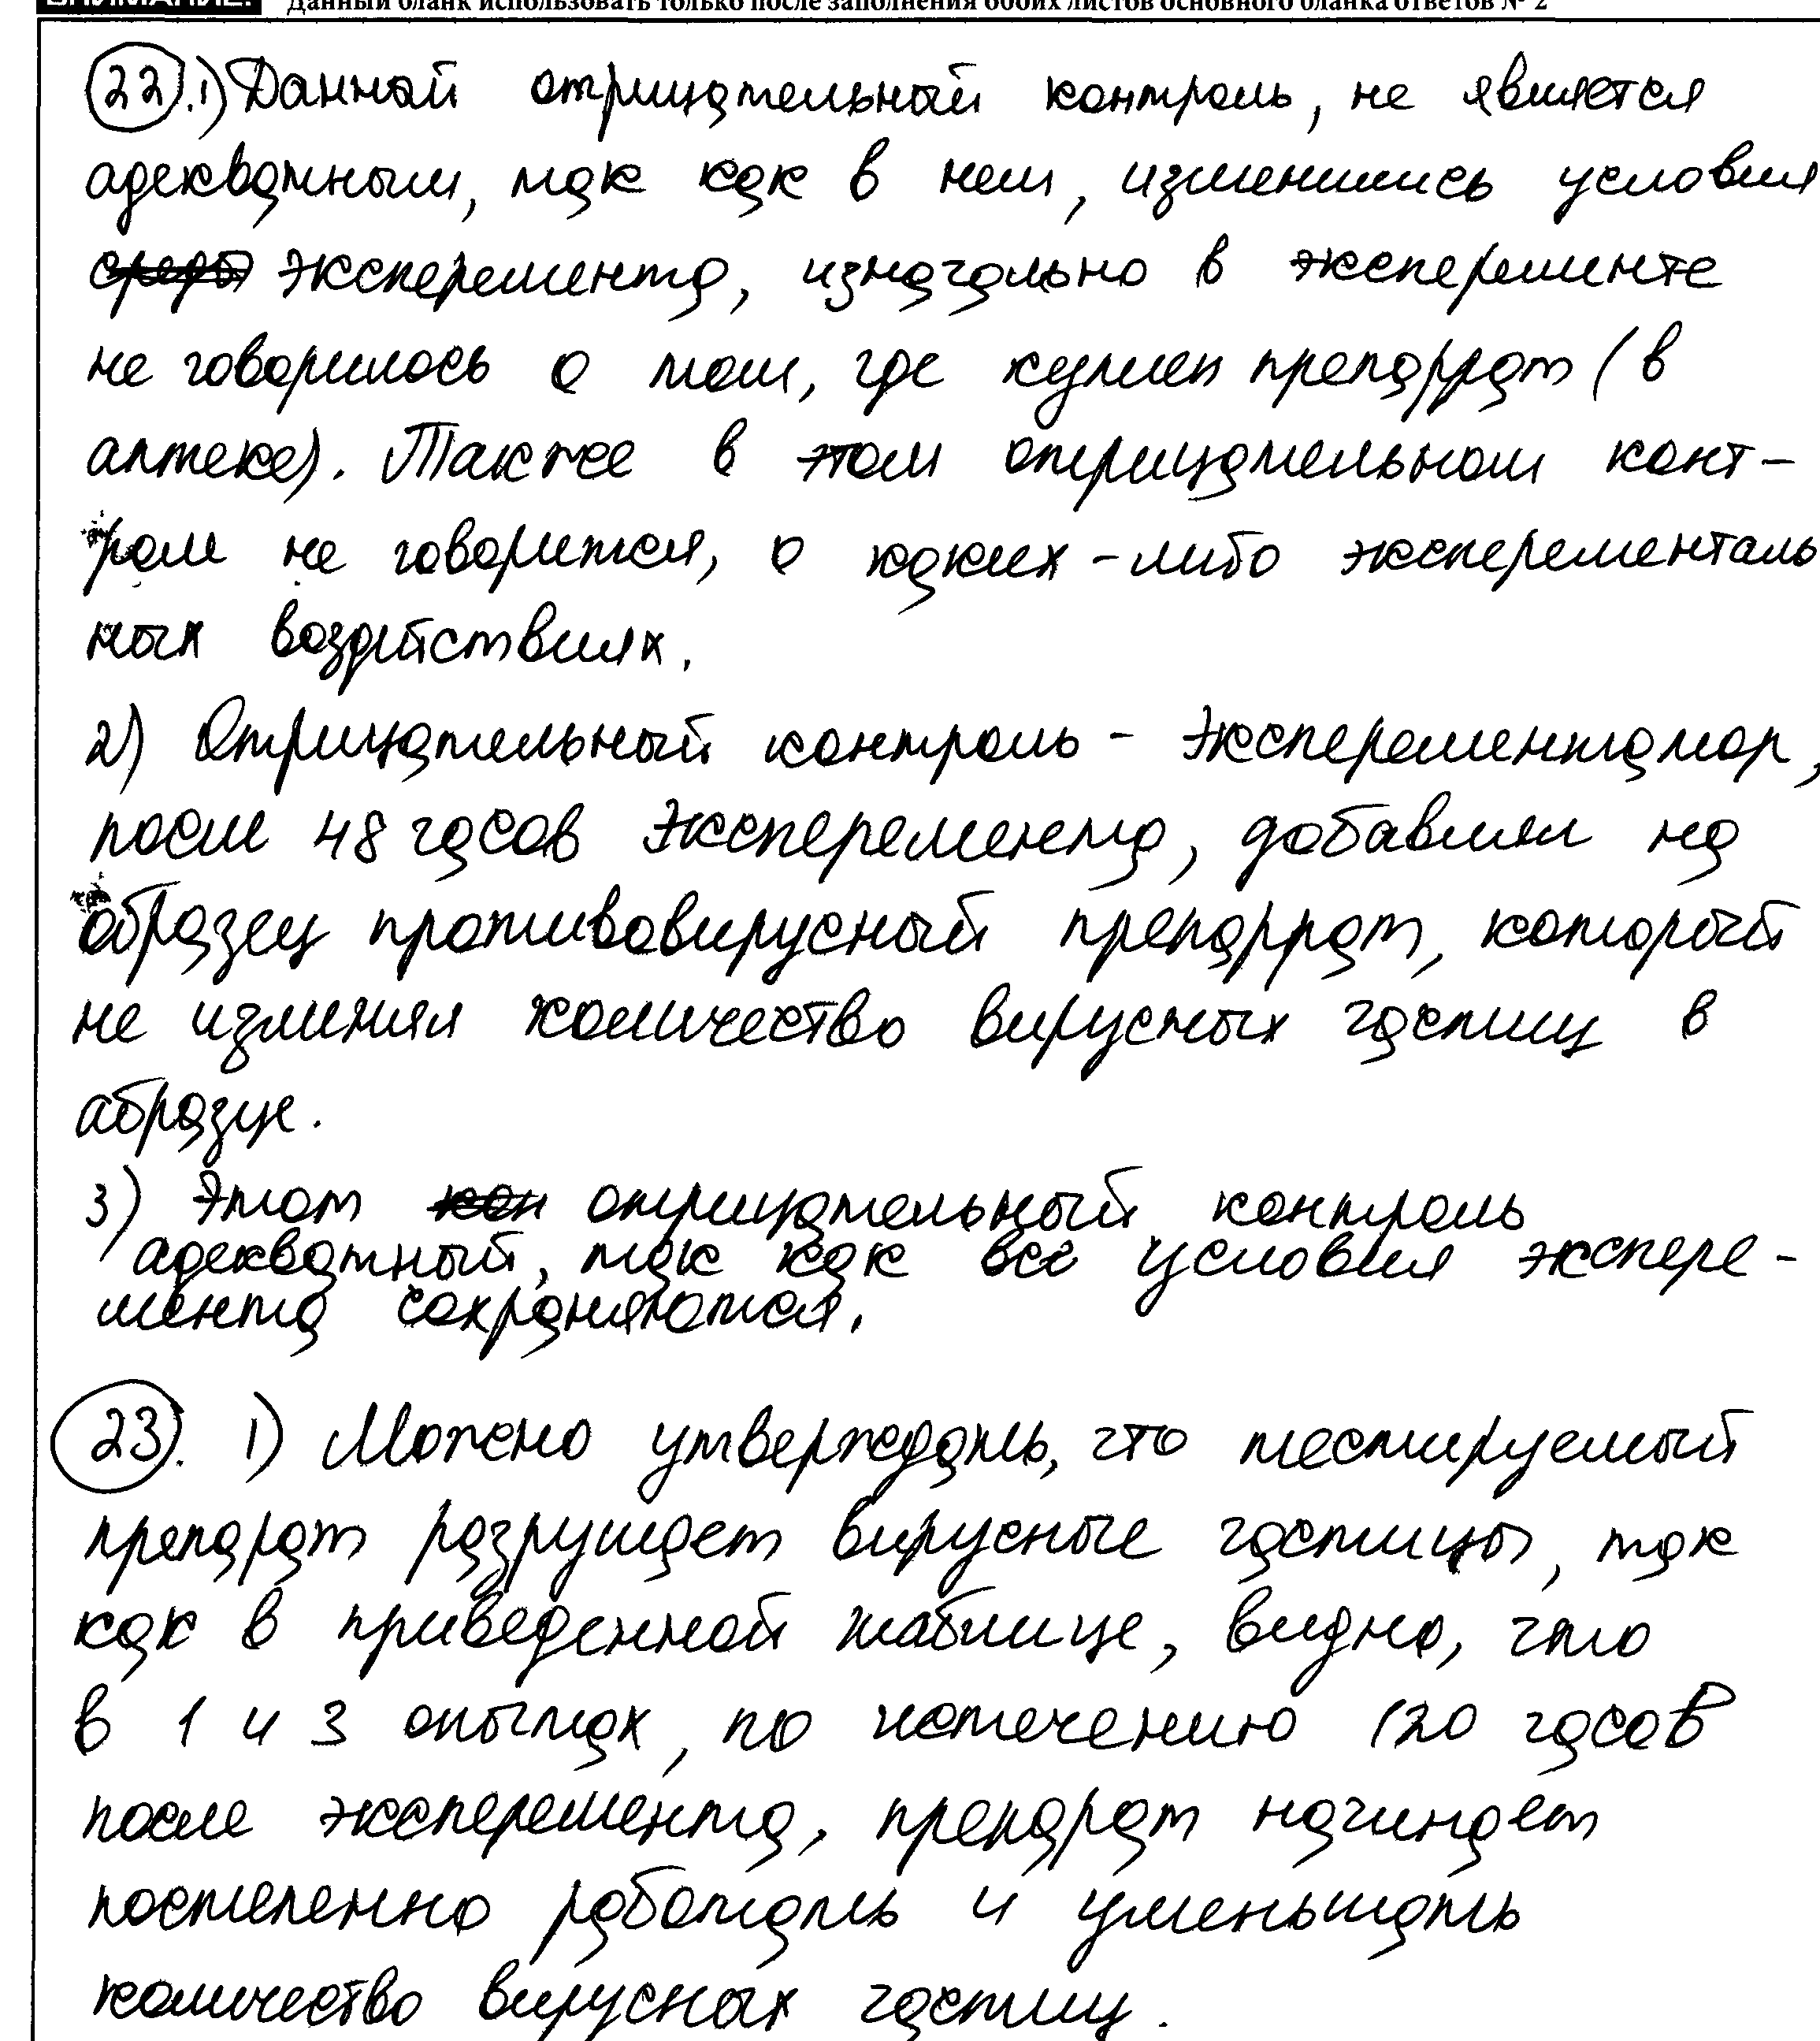 ВНИМАНИЕ! Данный бланк использовать только после заполнения обоих листов основного бланка ответов № 2
22. 1) Данной отрицательный контроль, не является
адекватным, так как в нем, изменились условия
эксперемента, изначально в эксперементе
не говорилось о том, где куплен препаррат (в
аптеке). Также в этом отрицательном конт-
роли не говорится, о каких-либо эксперименталь
ных воздействиях.
2) Отрицательный контроль - Эксперементатор,
после 48 часов Эксперемента, добавлял на
образец противовирусный препаррат, который
не изменял количество вирусных частиц в
образце.
3) Этот отрицательный контроль
адекватный, так как все условия экспере-
мента сохраняются.
23. 1) Можно утверждать, что тестируемый
препарат разрушает вирусные частицы, так
как в приведенной таблице, видно, что
в 1 и 3 опытах, по истечению 120 часов
после эксперемента, препарат начинает
постепенно работать и уменьшать
количество вирусных частиц.